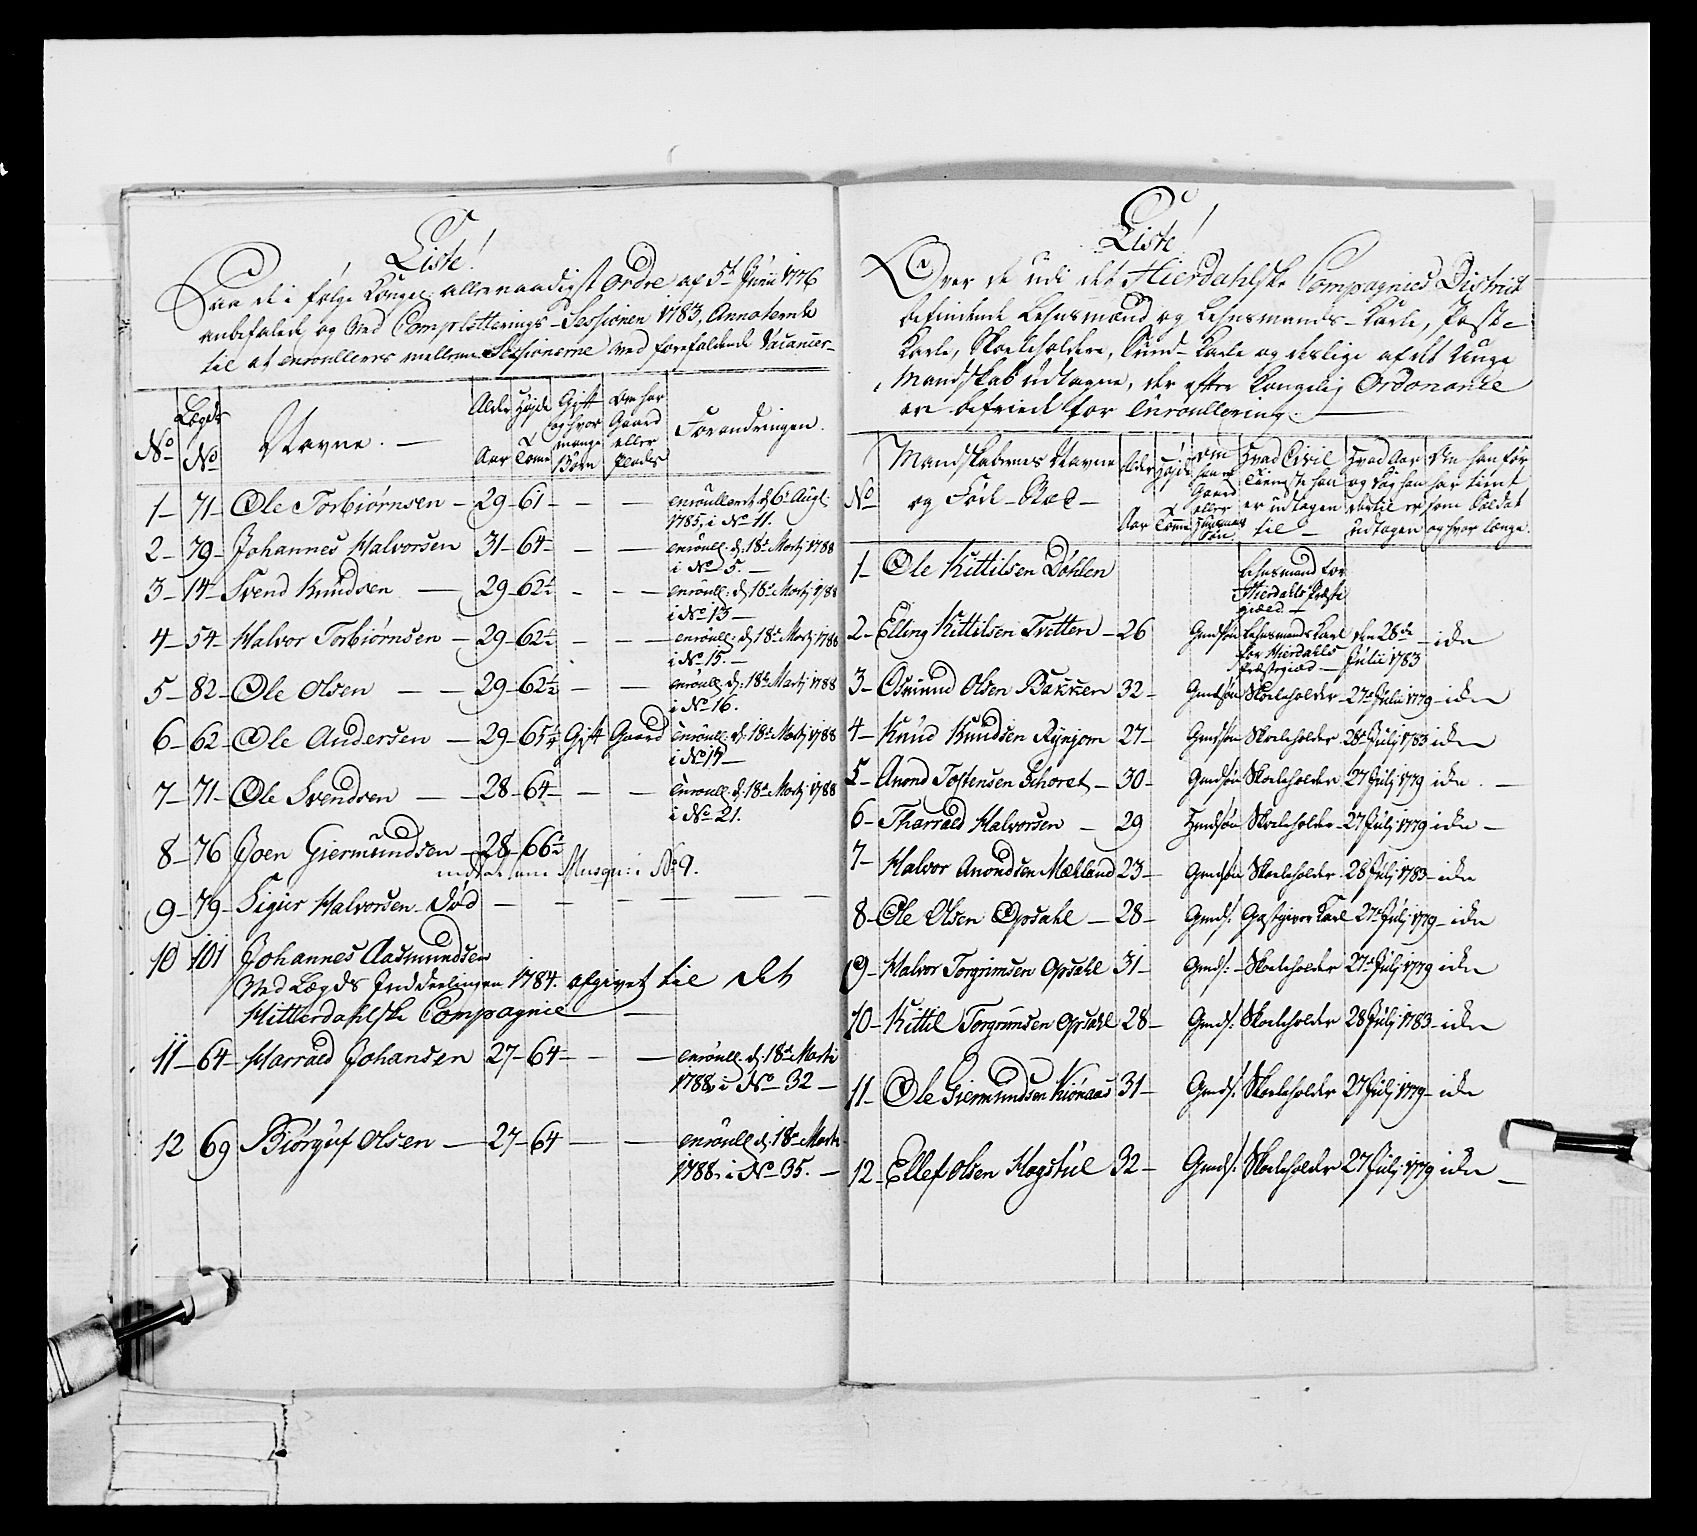 Liste!
Paa de i følge Kongel: allernaadigst Ordre af 5t Junii 1776
anbefalede og ved Completterings-Sessionen 1783, Annoterede
til at enroulleres mellem Sessionerne ved forefaldende Vacancer-
No Legds No Navne. Alder Aar Højde Tomme Gift og hvor mange Børn Om har Gaard eller Plads Forandringen.
1 - 71 - Ole Torbiørnsen - 29 - 61 - - - enroulleret d. 6t Augt.
1785, i No 11.
2 - 79 - Johannes Halvorsen 31 - 64 - - - enroull: d. 18t Martj 1788
i No 5. -
3 - 14 - Svend Knudsen - 29 - 62½ - - enroull: d. 18t Martj 1788
i No 13 -
4 - 54 - Halvor Torbiørnsen - 29 - 62½ - - enroull: d. 18t Martj 1788
i No 15. -
5 - 82 - Ole Olsen - - 29 - 62½ - - enroull: d. 18t Martj 1788
i No 16.
6 - 62 - Ole Andersen - 29 - 65¼ Gift Gaard enroull: d. 18t Martj 1788
i No
7 - 71 - Ole Svendsen - - 28 - 64 - - - enroull: d. 18t Martj 1788
i No 21.
8 - 76 Joen Giermundsen - 28 - 66½
indsat som Musqu: i No 9.
9 - 79 - Sigur Halvorsen - Død - - - - - -
10 101 Johannes Aasmundsen
Ved Lægds Inddeelingen 1784. afgivet til det
Hitterdahlske Compagnie -
11 - 64 - Harrald Johansen 27 - 64 - - - enroull: d. 18t Martj
1788, i No 32 -
12 69 Biørguf Olsen - 27 - 64 - - enroull: d. 18t Martj
1788, i No 35. -
Liste!
Over de udi det Hierdahlske Compagnies District
befindende Lehnsmænd og Lehnsmands-Karle, Post-
Karle, Skoeleholdere, Sund-Karle og deslige af det Unge
Mandskab udtagne, der efter Kongelig Ordonance
ere befriede for Enroullering. -
No Mandskabernes Navne og Føde-Sted - Alder Aar Højde Tomme Om han er Gaard eller Huusmands Søn Hvad Civil Tieneste han er udtagen til - Hvad Aar og Dag han dertil er udtagen Om han før har tient som Soldat og hvor længe.
1 - Ole Kittilsen Døhlen Lehnsmand for
Hierdahls Præste
giæld -
2 - Elling Kittilsen Tvetten - 26 Gmdsøn Lehnsmands Karl den 28de - ikke
for Hierdahls Julii 1783
Præstegiæld -
3 - Osmund Olsen Bakken 32 - Gmdsøn Skoeleholder - 27de Julii 1779 - ikke
4 - Knud Knudsen Rynjom 27 - Gmdsøn Skoeleholder 28t Julj 1783 ikke
5 - Anond Tostensen - 30 - Gmdsøn Skoeleholder 27 Julj 1779 ikke. -
6 - Tharrald Halvorsen - 29 Hmdsøn Skoeleholder - 27 Julj 1779 ikke -
7 - Halvor Anondsen Mælland 23 - Gmdsøn Skoeleholder 28 Julj 1783 - ikke
8 - Ole Olsen Opsahl - 28 - Gmds: Gæstgiver Karl 27t Julj 1779 - ikke
9 - Halvor Torgrimsen Opsahl 31 - Gmds: - Skoeleholder 27de Julj 1779 ikke
10 - Kittil Torgrimsen Opsahl 28 - Gmds: Skoeleholder 28 Julj 1783 - ikke
11 - Ole Giermundsen Kiønaas 31 - Gmds: Skoeleholder 27 Julj 1779 - ikke
12 - Ellef Olsen Hogstul 32 - Gmds: Skoeleholder 27 Julj 1779 ikke -